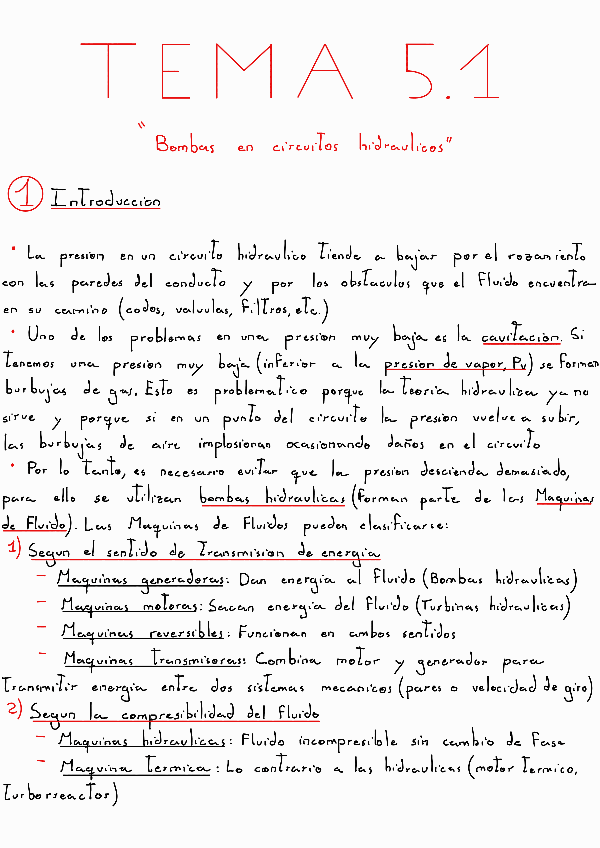 TEMA 5.1
"Bombas en circuitos hidraulicos"
1 Introduccion
· La presion en un circuito hidraulico tiende a bajar por el rozamiento
con las paredes del conducto y por los obstaculos que el fluido encuentra
en su camino (codos, valvulas, filtros, etc.)
· Uno de los problemas en una presion muy baja es la cavitacion. Si
tenemos una presion muy baja (inferior a la presion de vapor, Pv) se forman
burbujas de gas. Esto es problematico porque la teoria hidraulica ya no
sirve y porque si en un punto del circuito la presion vuelve a subir,
las burbujas de aire implosionan ocasionando daños en el circuito
· Por lo tanto, es necesario evitar que la presion descienda demasiado,
para ello se utilizan bombas hidraulicas (forman parte de las Maquinas
de Fluido). Las Maquinas de Fluidos pueden clasificarse:
1) Segun el sentido de Transmision de energia
- Maquinas generadoras: Dan energia al fluido (Bombas hidraulicas)
- Maquinas motoras: Sacan energia del fluido (Turbinas hidraulicas)
- Maquinas reversibles: Funcionan en ambos sentidos
- Maquinas transmisoras: Combina motor y generador para
transmitir energia entre dos sistemas mecanicos (pares o velocidad de giro)
2) Segun la compresibilidad del fluido
- Maquinas hidraulicas: Fluido incompresible sin cambio de fase
- Maquina termica: Lo contrario a las hidraulicas (motor termico,
turborseactor)